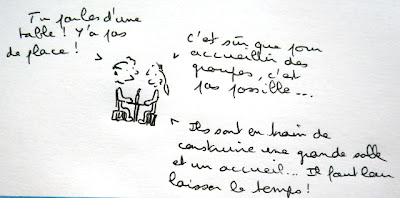 Tu parles d'une
table ! Y'a pas
de place !
c'est sûr que pour
accueillir des
groupes, c'est
pas possible...
Ils sont en train de
construire une grande salle
et un accueil... Il faut leur
laisser le temps !